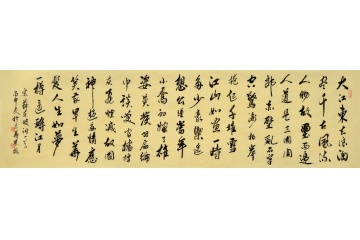 大江東去浪淘
尽千古風流
人物故壘西邊
人道是三國周
郎赤壁亂石穿
空驚濤拍岸
捲起千堆雪
江山如畫一時
多少豪傑遥
想公瑾當年
小喬初嫁了雄
姿英發羽扇綸
巾談笑間檣櫓
灰飛煙滅故國
神遊多情應
笑我早生華
髮人生如夢
一樽還酹江月